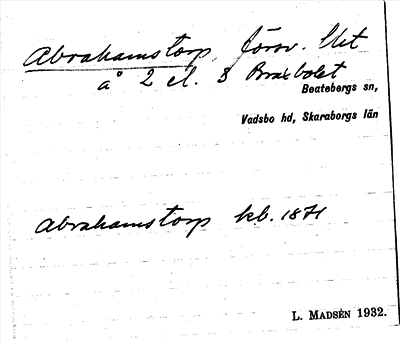 Abrahamstorp, försv. Utt
å 2 el. 3 Braxbolet
Beatebergs sn,
Vadsbo hd, Skaraborgs län
Abrahamstorp kb. 1871
L. MADSÉN 1932.